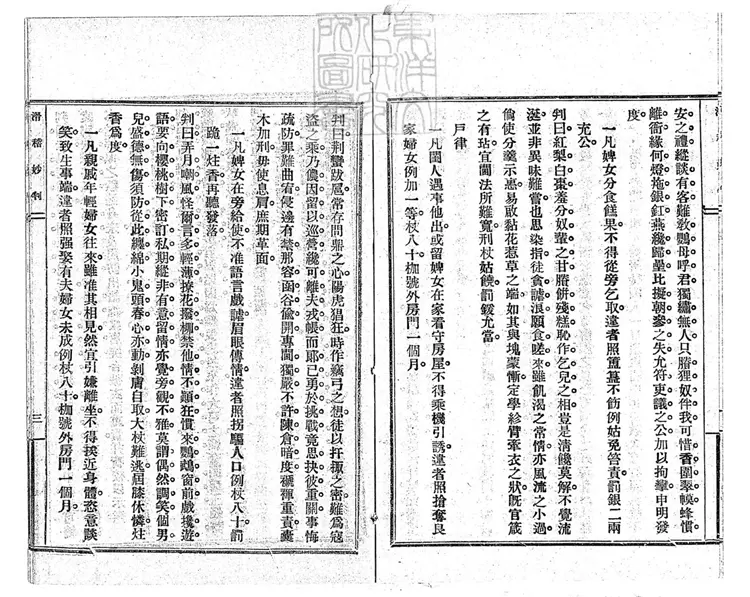 安之禮縱談有客難敎鸚母呼君獨繡無人只賸狸奴伴我可惜香圍翠幙蜂慣
離衙緣何燈拖銀釭燕纔歸壘比擬朝參之失允符吏議之公加以拘攣申明發
度
一凡婢女分食餻果不得從旁乞取違者照簠簋不飭例姑免管責罰銀二兩
充公
判曰紅梨白棗羞分奴輩之甘賸餅殘糕恥作乞兒之相豈是淸饞莫解不覺流
涎並非異味難嘗也思染指徒貪謔浪願食嗟來雖飢渴之常情亦風流之小過
倘使分羹示惠易啟黏花惹草之端如其與塊蒙慚定學紾臂牽衣之狀旣官箴
之有玷宜閫法所難寬刑杖姑饒罰鍰尤當
戶律
一凡閨人遇事他出或留婢女在家看守房屋不得乘機引誘違者照搶奪良
家婦女例加一等杖八十枷號外房門一個月
判曰荆蠻跋扈常存問鼎之心陽虎猖狂時作竊弓之想徒以扞掫之密難爲寇
盜之乘乃儂因留以巡營纔可離夫戎帳而郞已勇於挑戰竟思抉彼重關事悔
疏防罪難曲宥侵邊有禁那容函谷偸開專閫獨嚴不許陳倉暗度褫褌重責棄
木加刑毋使息肩庶期革面
一凡婢女在旁給使不准語言戲謔眉眼傳情違者照拐騙人口例杖八十罰
跪一炷香再聽發落
判曰弄月嘲風怪爾言多輕薄撩花撥柳禁他情不顚狂慣來鸚鵡窗前戲攙遊
語要向櫻桃樹下密訂私期縱非有意留情亦覺旁觀不雅莫謂偶然調笑個男
兒盛德無傷須防從此纏綿小鬼頭春心亦動剝膚自取大杖難逃屈膝休憐炷
香爲度
一凡親戚年輕婦女往來雖准其相見然宜引嫌離坐不得挨近身體恣意談
笑致生事端違者照强娶有夫婦女未成例杖八十枷號外房門一個月
滑稽妙判
三